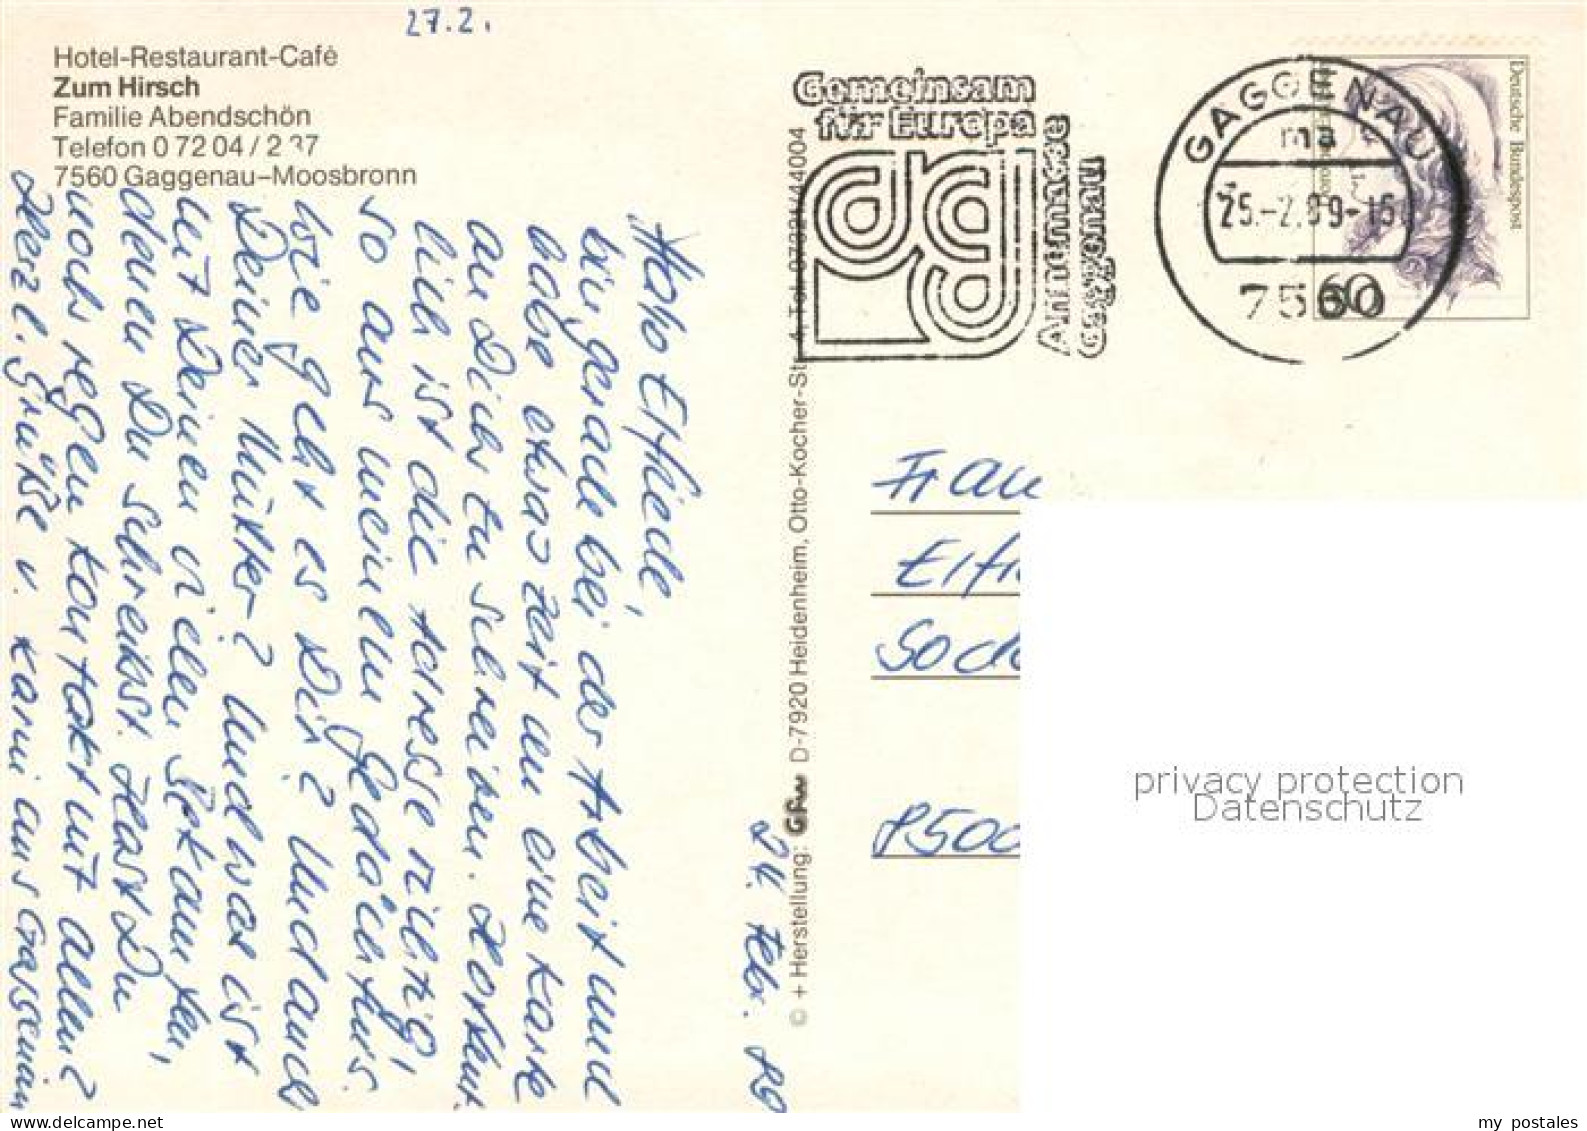 27.2.
Hotel-Restaurant-Café
Zum Hirsch
Familie Abendschön
Telefon 0 72 04 / 2 37
7560 Gaggenau-Moosbronn
Hallo Elfriede,
bin gerade bei der Arbeit und
habe etwas Zeit um eine Karte
an Dich zu schreiben. Hoffent
lich ist die Adresse richtig,
so aus meinem Gedächtnis.
Wie geht es Dir? Und auch
Deiner Mutter? Und was ist
mit Deinen vielen Bekannten,
denen Du schreibst. Hast Du
noch regen Kontakt mit allen?
Herzl. Grüße v. Karin aus Gaggenau
24. Febr. 89
© + Herstellung: GFW D-7920 Heidenheim, Otto-Kocher-Str. 4, Tel. 07321/44004
Gemeinsam
für Europa
Annemasse
Gaggenau
GAGGENAU
ma
25.-2.89-16
7560
Deutsche Bundespost
60
Frau
Elfri
8500
privacy protection
Datenschutz
my postales